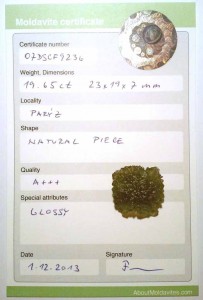 Moldavite certificate
Certificate number
Weight, Dimensions
19.65 ct 23x19x7 mm
Locality
PAŘÍŽ
Shape
NATURAL PIECE
Quality
A+++
Special attributes
GLOSSY
Date
Signature
1.12.2013
AboutMoldavites.com